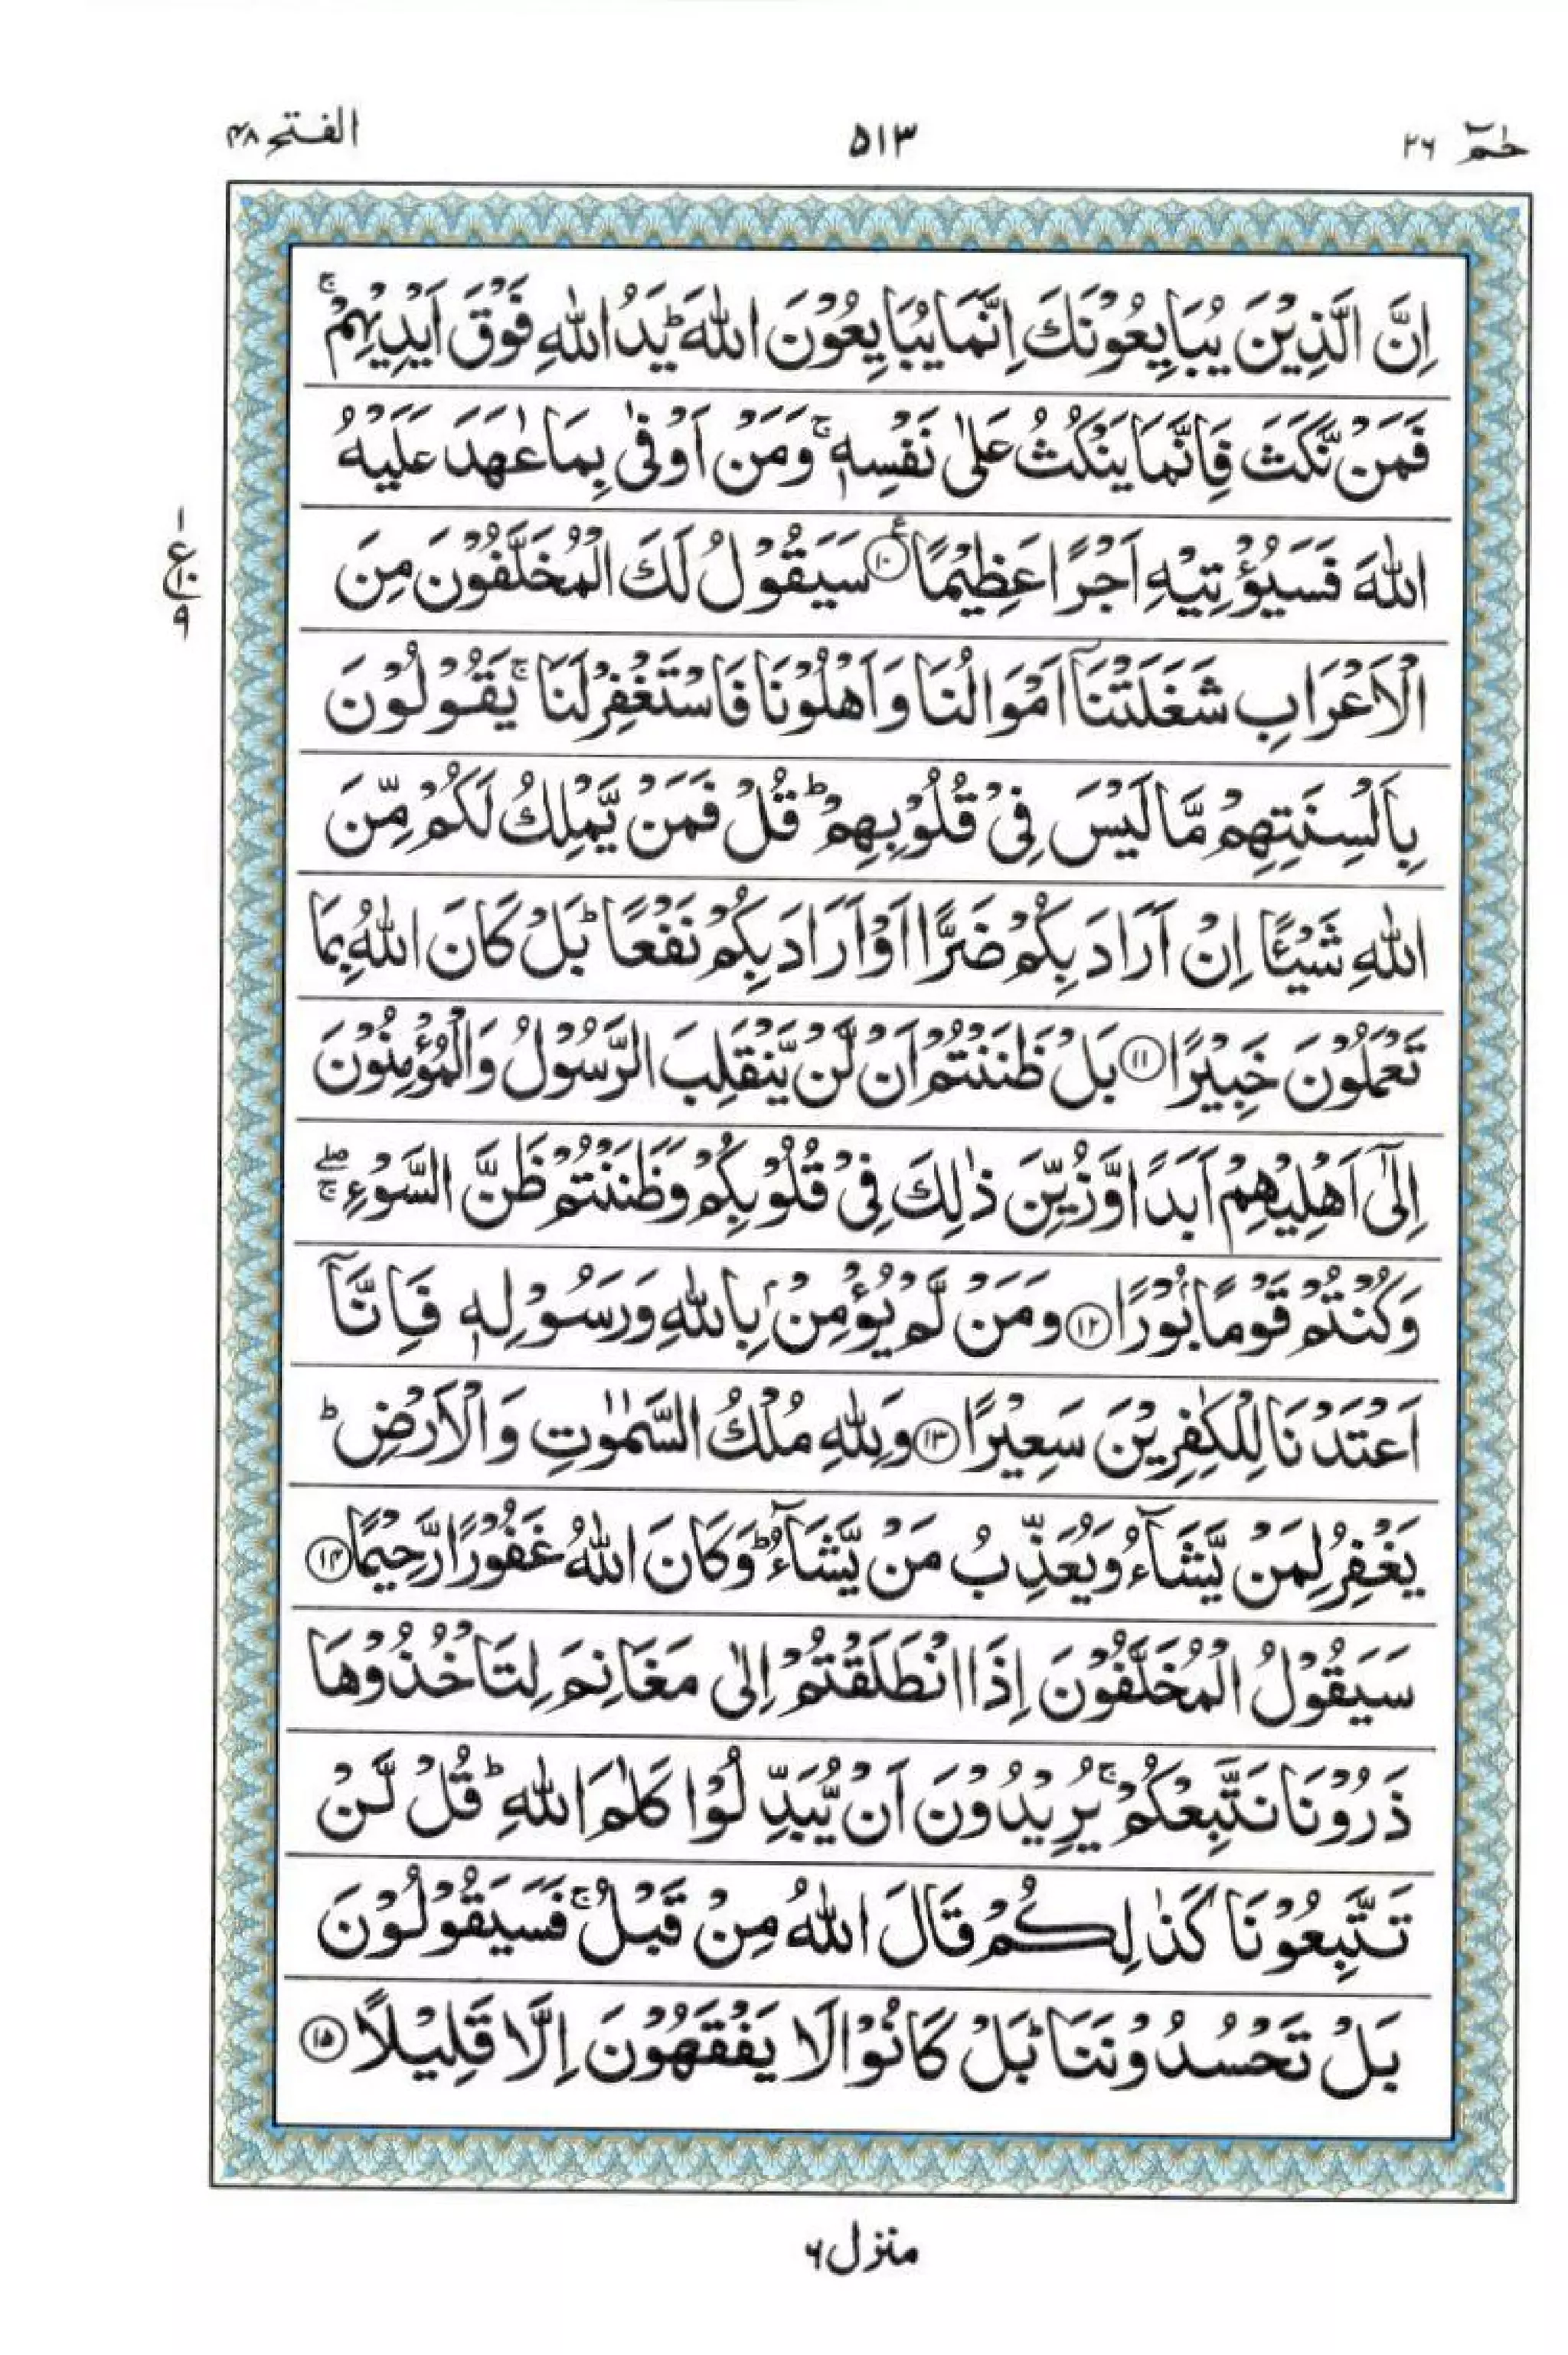 حٰمٓ ٢٦ ٥١٣ الفتح ٤٨
اِنَّ الَّذِيْنَ يُبَايِعُوْنَكَ اِنَّمَا يُبَايِعُوْنَ اللّٰهَ ؕ يَدُ اللّٰهِ فَوْقَ اَيْدِيْهِمْ ۚ
فَمَنْ نَّكَثَ فَاِنَّمَا يَنْكُثُ عَلٰى نَفْسِهٖ ۚ وَمَنْ اَوْفٰى بِمَا عٰهَدَ عَلَيْهُ
اللّٰهَ فَسَيُؤْتِيْهِ اَجْرًا عَظِيْمًا ۧ ﴿١٠﴾ سَيَقُوْلُ لَكَ الْمُخَلَّفُوْنَ مِنَ
الْاَعْرَابِ شَغَلَتْنَاۤ اَمْوَالُنَا وَاَهْلُوْنَا فَاسْتَغْفِرْلَنَا ۚ يَقُوْلُوْنَ
بِاَلْسِنَتِهِمْ مَّا لَيْسَ فِىْ قُلُوْبِهِمْ ؕ قُلْ فَمَنْ يَّمْلِكُ لَكُمْ مِّنَ
اللّٰهِ شَيْـًٔا اِنْ اَرَادَ بِكُمْ ضَرًّا اَوْ اَرَادَ بِكُمْ نَفْعًا ؕ بَلْ كَانَ اللّٰهُ بِمَا
تَعْمَلُوْنَ خَبِيْرًا ﴿١١﴾ بَلْ ظَنَنْتُمْ اَنْ لَّنْ يَّنْقَلِبَ الرَّسُوْلُ وَالْمُؤْمِنُوْنَ
اِلٰٓى اَهْلِيْهِمْ اَبَدًا وَّزُيِّنَ ذٰلِكَ فِىْ قُلُوْبِكُمْ وَظَنَنْتُمْ ظَنَّ السَّوْءِ ۖۚ
وَكُنْتُمْ قَوْمًا بُوْرًا ﴿١٢﴾ وَمَنْ لَّمْ يُؤْمِنْۢ بِاللّٰهِ وَرَسُوْلِهٖ فَاِنَّاۤ
اَعْتَدْنَا لِلْكٰفِرِيْنَ سَعِيْرًا ﴿١٣﴾ وَلِلّٰهِ مُلْكُ السَّمٰوٰتِ وَالْاَرْضِ ؕ
يَغْفِرُ لِمَنْ يَّشَآءُ وَيُعَذِّبُ مَنْ يَّشَآءُ ؕ وَكَانَ اللّٰهُ غَفُوْرًا رَّحِيْمًا ﴿١٤﴾
سَيَقُوْلُ الْمُخَلَّفُوْنَ اِذَا انْطَلَقْتُمْ اِلٰى مَغَانِمَ لِتَاْخُذُوْهَا
ذَرُوْنَا نَتَّبِعْكُمْ ۚ يُرِيْدُوْنَ اَنْ يُّبَدِّلُوْا كَلٰمَ اللّٰهِ ؕ قُلْ لَّنْ
تَتَّبِعُوْنَا كَذٰلِكُمْ قَالَ اللّٰهُ مِنْ قَبْلُ ۚ فَسَيَقُوْلُوْنَ
بَلْ تَحْسُدُوْنَنَا ؕ بَلْ كَانُوْا لَا يَفْقَهُوْنَ اِلَّا قَلِيْلًا ﴿١٥﴾
١
ع
١٠
٩
منزل ٦